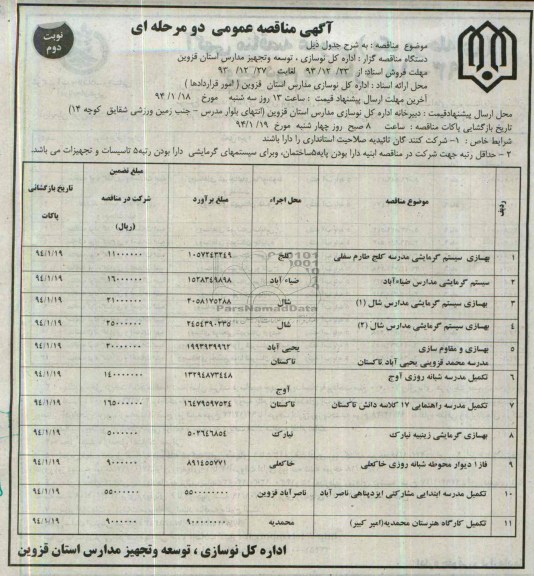 آگهی مناقصه عمومی دو مرحله ای
نوبت دوم
موضوع مناقصه : به شرح جدول ذیل
دستگاه مناقصه گزار : اداره کل نوسازی ، توسعه وتجهیز مدارس استان قزوین
مهلت فروش اسناد: از ۹۳/۱۲/۲۳ لغایت ۹۳/۱۲/۲۷
محل ارائه اسناد : اداره کل نوسازی مدارس استان قزوین ( امور قراردادها )
آخرین مهلت ارسال پیشنهاد قیمت : ساعت ۱۳ روز سه شنبه مورخ ۹۴/۱/۱۸
محل ارسال پیشنهادقیمت : دبیرخانه اداره کل نوسازی مدارس استان قزوین (انتهای بلوار مدرس – جنب زمین ورزشی شقایق کوچه ۱۴)
تاریخ بازگشایی پاکات مناقصه : ساعت ۸ صبح روز چهار شنبه مورخ ۹۴/۱/۱۹
شرایط خاص : ۱– شرکت کنند گان تائیدیه صلاحیت استانداری را دارا باشند
۲ – حداقل رتبه جهت شرکت در مناقصه ابنیه دارا بودن پایه۵ساختمان، وبرای سیستمهای گرمایشی دارا بودن رتبه۵ تاسیسات و تجهیزات می باشد.
ردیف موضوع مناقصه محل اجراء مبلغ برآورد مبلغ تضمین شرکت در مناقصه (ریال) تاریخ بازگشائی پاکات
۱ بهسازی سیستم گرمایشی مدرسه کلج طارم سفلی کلج ۱۰۵۷۲۴۳۲۴۹ ۱۱۰۰۰۰۰۰ ۹۴/۱/۱۹
۲ سیستم گرمایشی مدارس ضیاءآباد ضیاء آباد ۱۵۲۸۳۴۹۸۹۸ ۱۶۰۰۰۰۰۰ ۹۴/۱/۱۹
۳ بهسازی سیستم گرمایشی مدارس شال (۱) شال ۲۰۵۸۱۷۵۲۸۸ ۲۱۰۰۰۰۰۰ ۹۴/۱/۱۹
۴ بهسازی سیستم گرمایشی مدارس شال (۲) شال ۲۴۵۴۳۹۰۲۳۵ ۲۵۰۰۰۰۰۰ ۹۴/۱/۱۹
۵ بهسازی و مقاوم سازی مدرسه محمد قزوینی یحیی آباد تاکستان یحیی آباد تاکستان ۱۹۹۳۹۳۹۹۶۲ ۲۰۰۰۰۰۰۰ ۹۴/۱/۱۹
۶ تکمیل مدرسه شبانه روزی آوج آوج ۱۳۲۹۴۸۷۳۴۴۸ ۱۴۰۰۰۰۰۰۰ ۹۴/۱/۱۹
۷ تکمیل مدرسه راهنمایی ۱۷ کلاسه دانش تاکستان تاکستان ۱۶۴۷۹۵۹۷۵۲۴ ۱۶۵۰۰۰۰۰۰ ۹۴/۱/۱۹
۸ بهسازی گرمایشی زینبیه نیارک نیارک ۵۰۳۶۴۶۸۵۴ ۵۰۰۰۰۰۰ ۹۴/۱/۱۹
۹ فاز۱ دیوار محوطه شبانه روزی خاکعلی خاکعلی ۸۹۱۴۵۵۷۷۱ ۹۰۰۰۰۰۰ ۹۴/۱/۱۹
۱۰ تکمیل مدرسه ابتدایی مشارکتی ایزدپناهی ناصر آباد ناصرآباد قزوین ۵۵۰۰۰۰۰۰۰۰ ۵۵۰۰۰۰۰۰ ۹۴/۱/۱۹
۱۱ تکمیل کارگاه هنرستان محمدیه(امیر کبیر) محمدیه ۹۰۰۰۰۰۰۰۰ ۹۰۰۰۰۰۰ ۹۴/۱/۱۹
ParsNamadData
اداره کل نوسازی ، توسعه وتجهیز مدارس استان قزوین